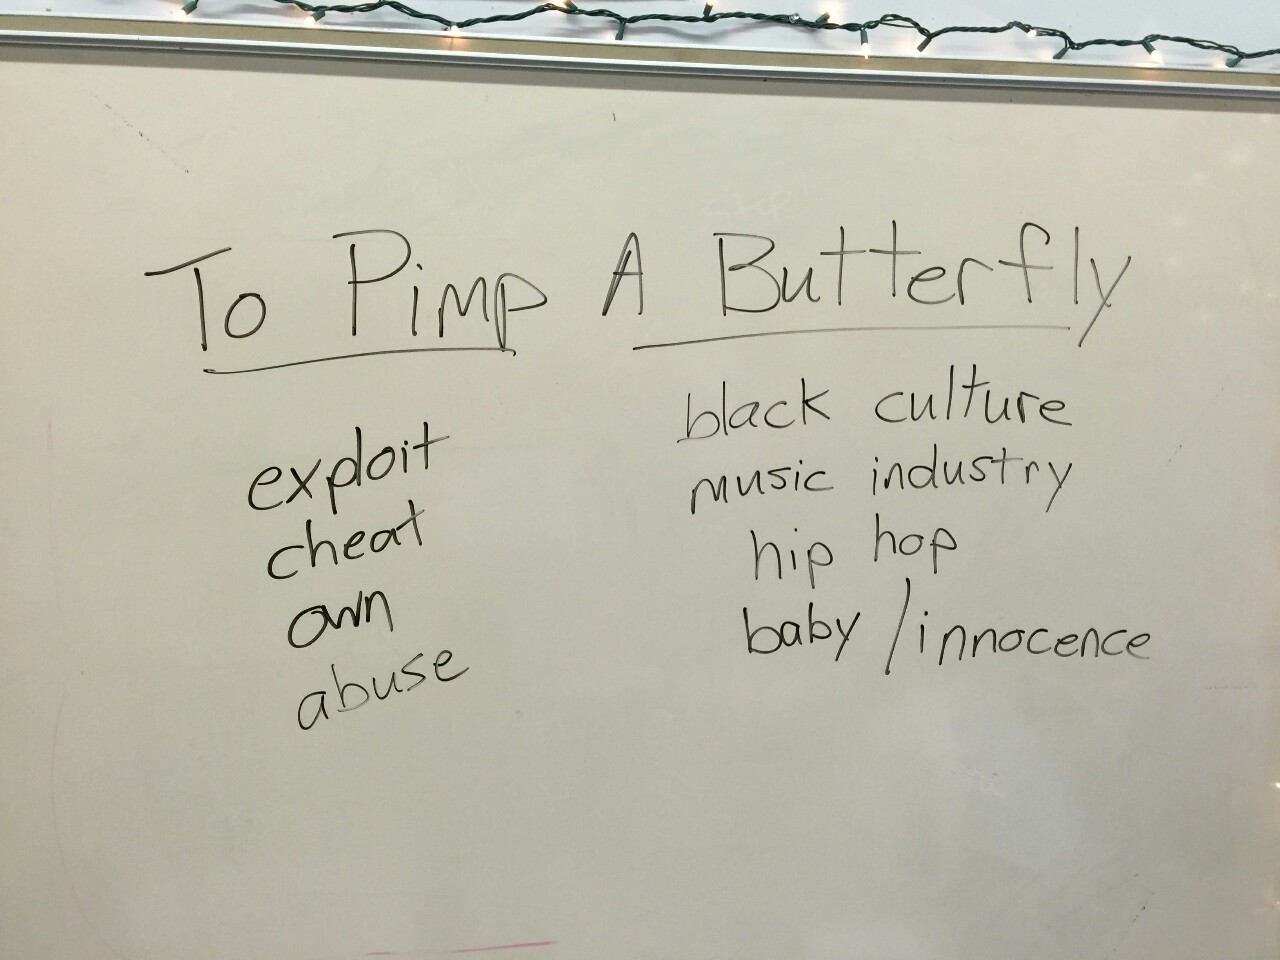 To Pimp A Butterfly
exploit
cheat
own
abuse
black culture
music industry
hip hop
baby / innocence